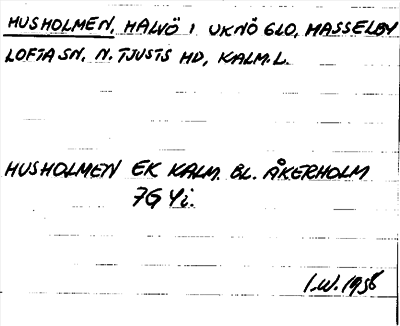 HUSHOLMEN, HALVÖ I UKNÖ 6LO, HASSELBY
LOFTA SN, N. TJUSTS HD, KALM. L.
HUSHOLMEN EK KALM. BL. ÅKERHOLM
7G 4i.
I.W. 1958